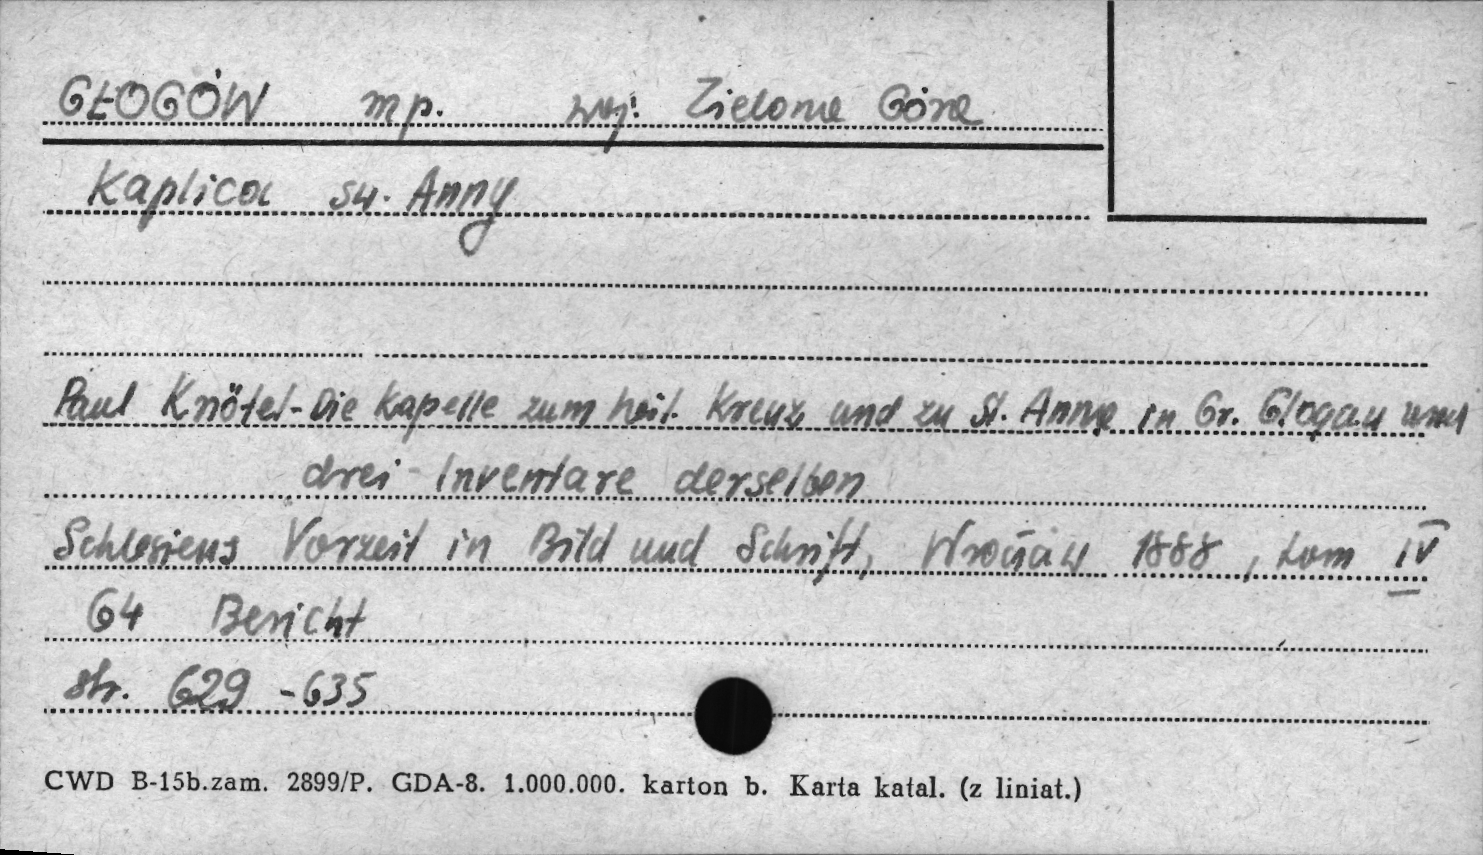 GŁOGÓW mp. woj: Zielona Góra
Kaplica św. Anny
Paul Knötel - Die Kapelle zum heil. Kreuz und zu St. Anna in Gr. Glogau und
drei Inventare derselben
Schlesiens Vorzeit in Bild und Schrift, Wrocław 1888, tom IV
64 Bericht
str. 629 - 635
CWD B-15b.zam. 2899/P. GDA-8. 1.000.000. karton b. Karta katal. (z liniat.)